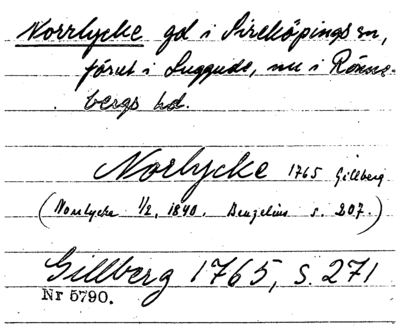 Norrlycke gd i Sireköpings sn,
förut i Luggude, nu i Rönne-
bergs hd.
Norlycke 1765 Gillberg
(Norrlycke 1/2, 1840. Bengelius s. 207.)
Gillberg 1765, s. 271
Nr 5790.